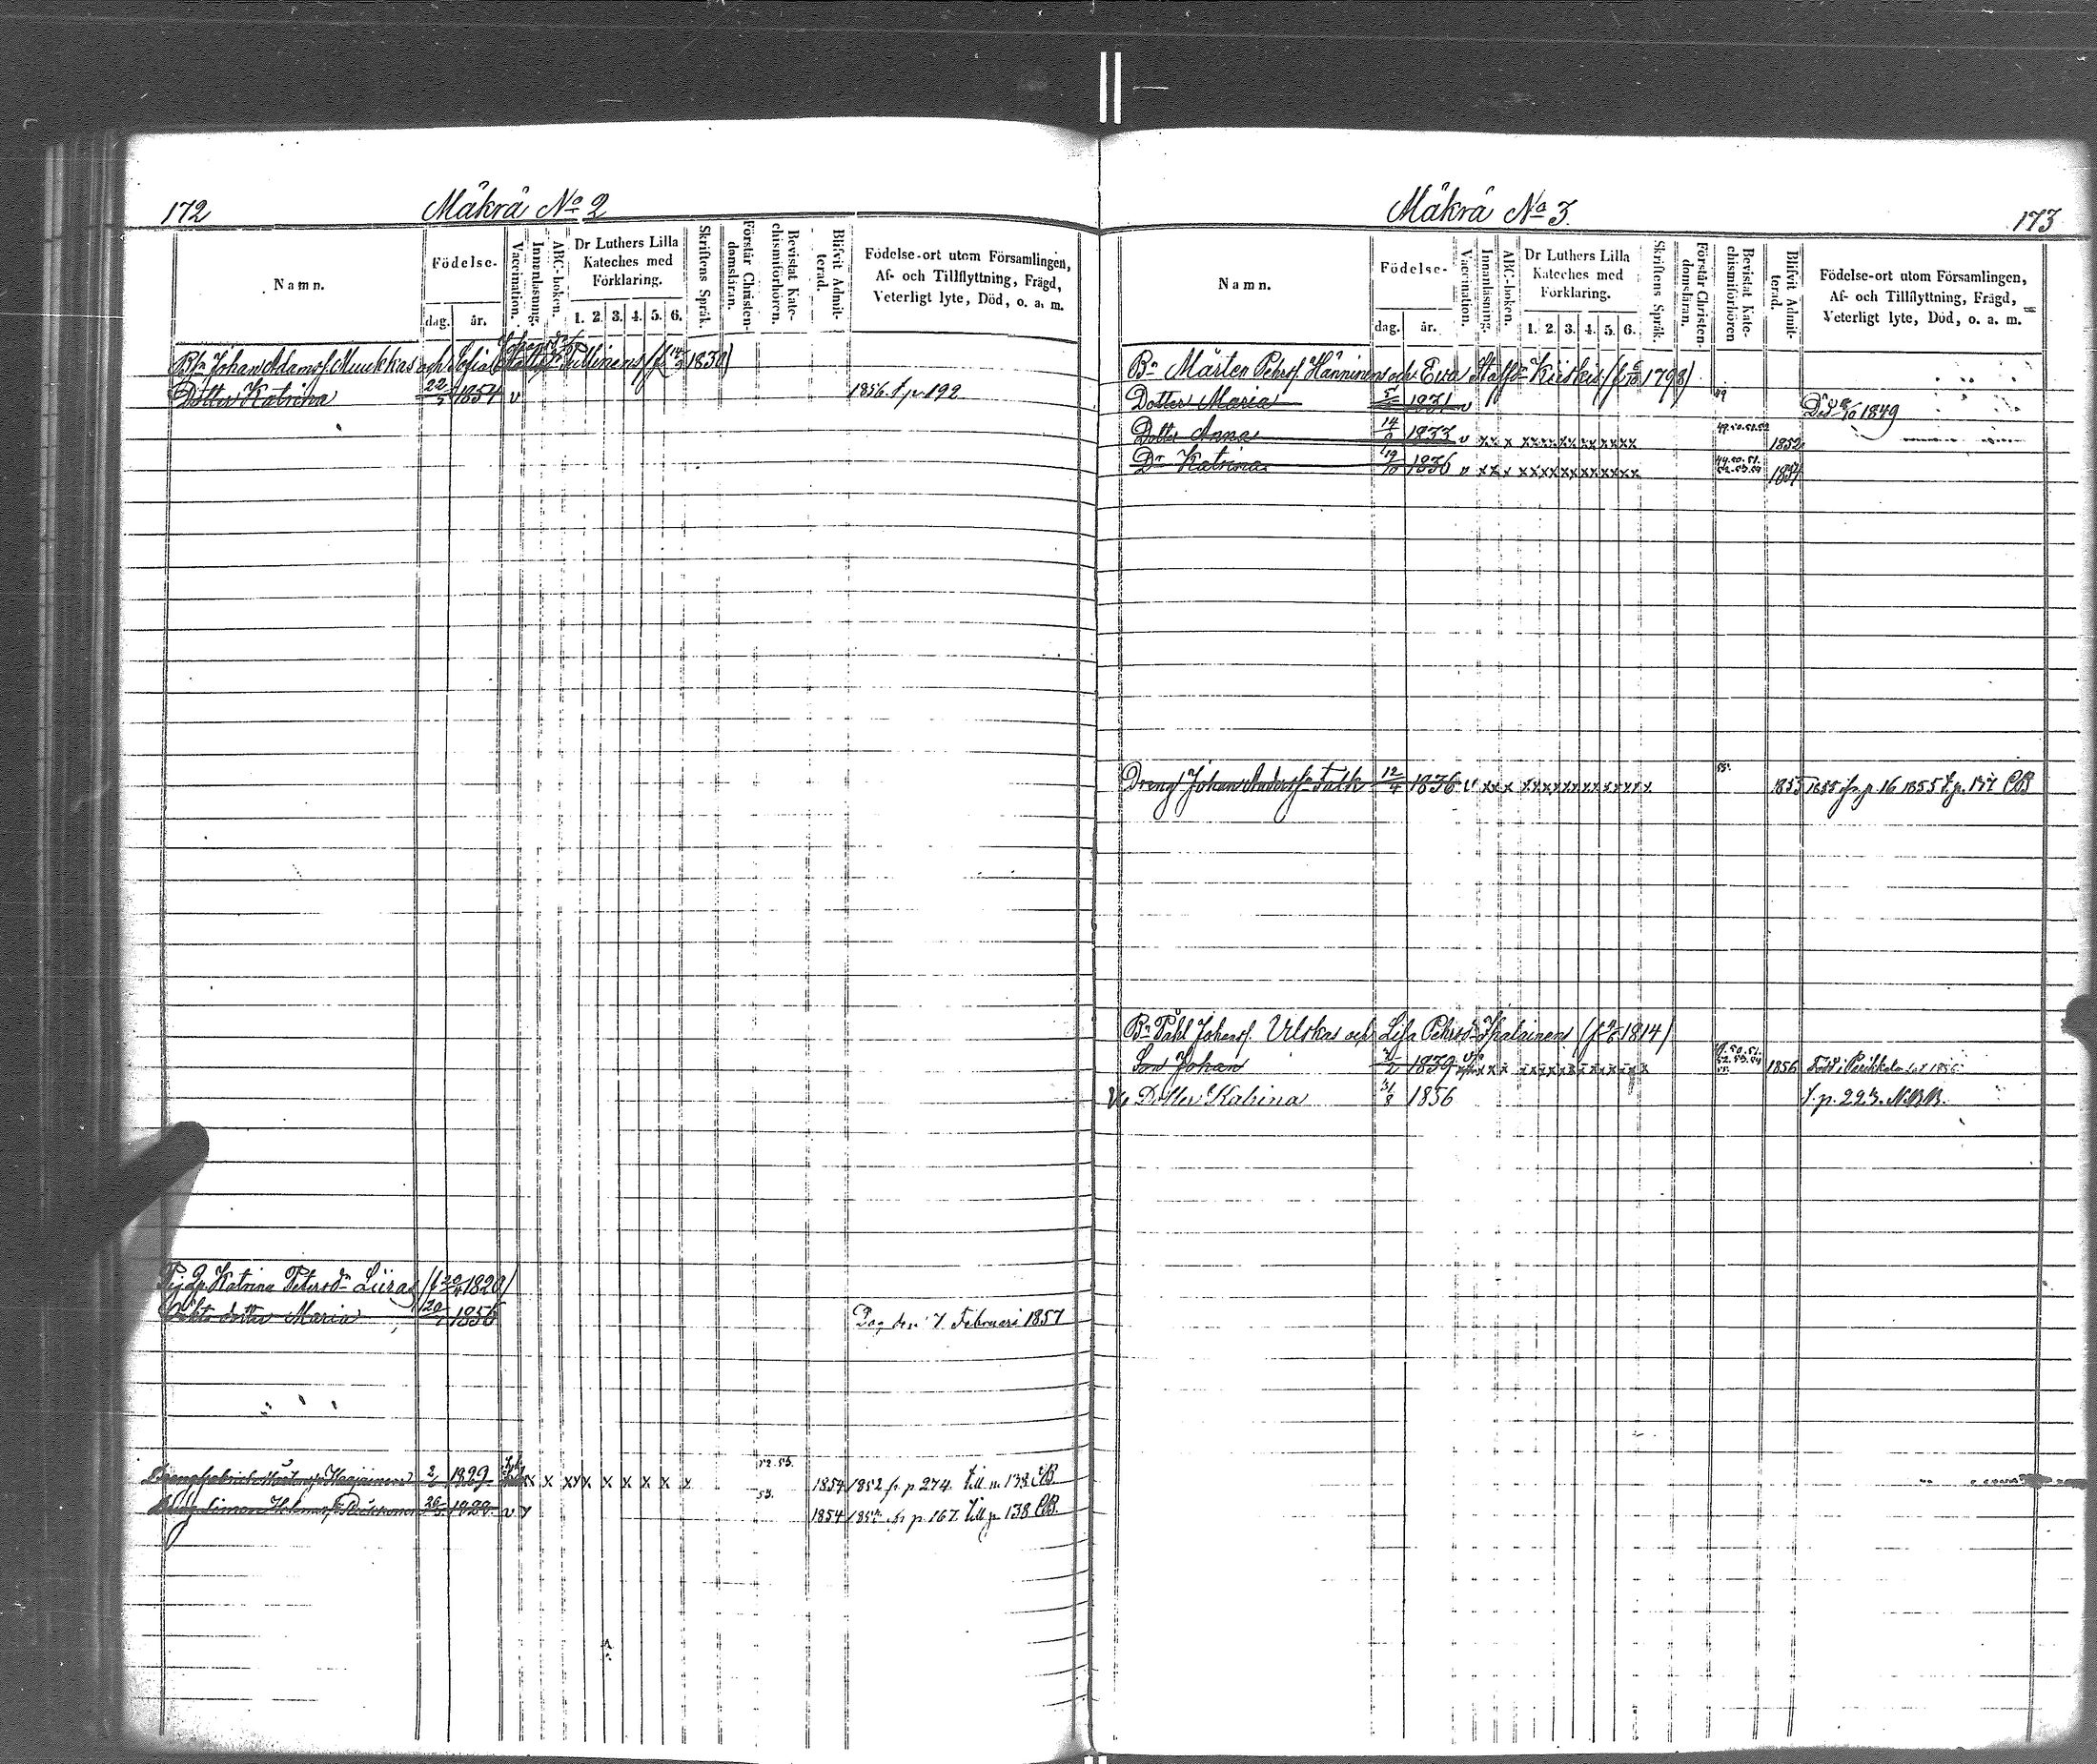 172
Mäkrä No 2
Namn.
Födelse-
dag. år.
Vaccination.
Innanläsning.
ABC-boken.
Dr Luthers Lilla
Kateches med
Förklaring.
1. 2. 3. 4. 5. 6.
Skriftens Språk.
Förstår Christen-
domsläran.
Bevistat Kate-
chismiförhören.
Blifvit Admit-
terad.
Födelse-ort utom Församlingen,
Af- och Tillflyttning, Frägd,
Veterligt lyte, Död, o. a. m.
Johan Adamsf. Muukkas och Sofia 1830)
Dotter Katrina 22/5 1854 v 1856 t. p. 192
Katrina Petersdr Liiras 1820)
dotter Maria 20 1856 den 7 Februari 1857
52.53.
Dreng 2 1829 x x x x x x x x 1854 1852 fr. p 274 till p. 138 CB
53.
Dreng Simon v 1854 fr p. 167. till p 138 CB.
Mäkrä No 3.
173
Namn.
Födelse-
dag. år.
Vaccination.
Innanläsning.
ABC-boken.
Dr Luthers Lilla
Kateches med
Förklaring.
1. 2. 3. 4. 5. 6.
Skriftens Språk.
Förstår Christen-
domsläran.
Bevistat Kate-
chismiförhören
Blifvit Admit-
terad.
Födelse-ort utom Församlingen,
Af- och Tillflyttning, Frägd,
Veterligt lyte, Död, o. a. m.
Bn Mårten Pehrsf. Hänninens och Eva Staffsdr Kiiskis 1798)
Dotter Maria 5 1831 v 49 Död 1849
Dotter Anna 14 1833 v x x x xxxxxxxxxxxx 49.50.51.52 1852
Dr Katrina 19/10 1836 v x x x xxxxxxxxxxxx 49.50.51. 52.53.54 1854
Dreng Johan Andersf. Falk 12/4 1836 v x x x xxxxxxxxxxxxx 55. 1855 1855 fr. p. 16 1855 t. p. 137 CB
Bn Påhl Johansf. Ulskas och Lisa Pehrsdr Ihalainens 1814)
Son Johan 2 1839 x x x xxxxxxxxxxxxx 50.51. 52.53.54 1856 Född i Parikkala
Dotter Katrina 31/8 1856 t. p. 223. N.B.B.